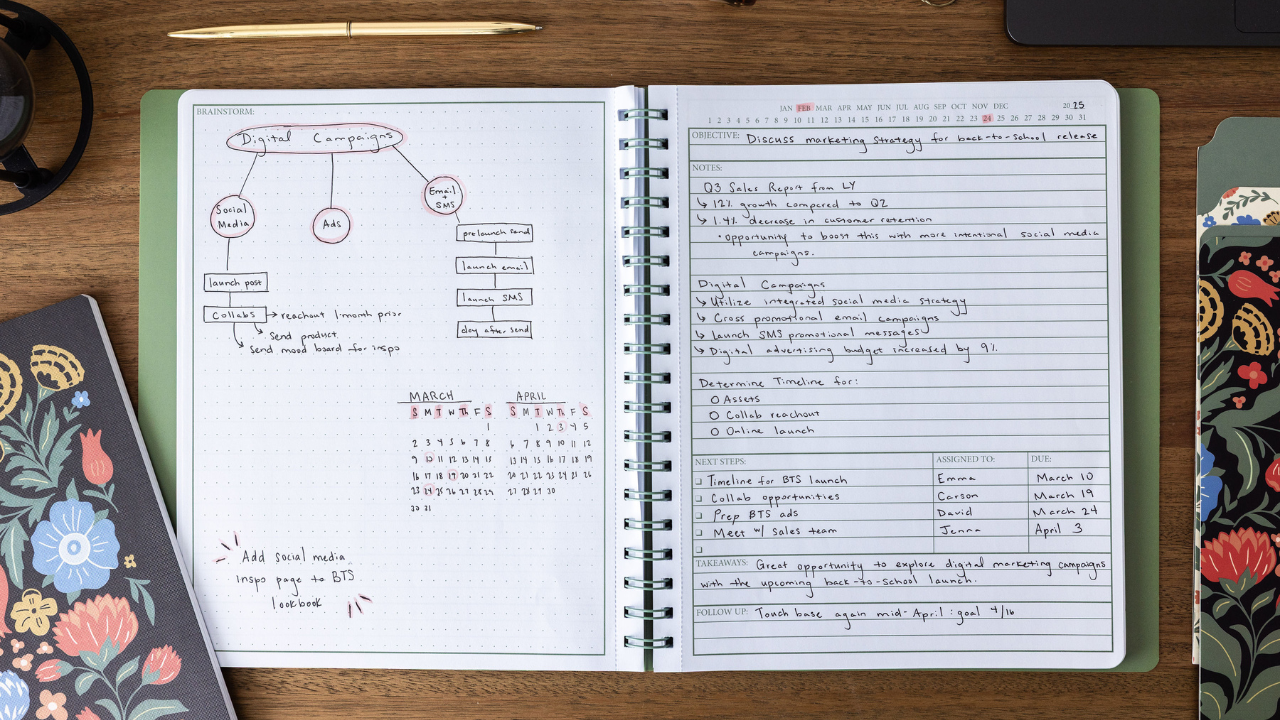 BRAINSTORM:
Digital Campaigns
Social
Media
Ads
Email
+
SMS
prelaunch send
launch email
launch SMS
day after send
launch post
Collabs
reachout 1 month prior
Send product
Send mood board for inspo
MARCH
S M T W Th F S
1
2 3 4 5 6 7 8
9 10 11 12 13 14 15
16 17 18 19 20 21 22
23 24 25 26 27 28 29
30 31
APRIL
S M T W Th F S
1 2 3 4 5
6 7 8 9 10 11 12
13 14 15 16 17 18 19
20 21 22 23 24 25 26
27 28 29 30
Add social media
inspo page to BTS
lookbook
JAN FEB MAR APR MAY JUN JUL AUG SEP OCT NOV DEC
20 25
1 2 3 4 5 6 7 8 9 10 11 12 13 14 15 16 17 18 19 20 21 22 23 24 25 26 27 28 29 30 31
OBJECTIVE: Discuss marketing strategy for back-to-school release
NOTES:
Q3 Sales Report from LY
↳ 12% growth compared to Q2
↳ 1.4% decrease in customer retention
• Opportunity to boost this with more intentional social media
campaigns.
Digital Campaigns
↳ Utilize integrated social media strategy
↳ Cross promotional email campaigns
↳ launch SMS promotional messages
↳ Digital advertising budget increased by 9%
Determine Timeline for:
O Assets
O Collab reachout
O Online launch
NEXT STEPS: ASSIGNED TO: DUE:
Timeline for BTS launch Emma March 10
Collab opportunities Carson March 19
Prep BTS ads David March 24
Meet w/ Sales team Jenna April 3
TAKEAWAYS: Great opportunity to explore digital marketing campaigns
with the upcoming back-to-school launch.
FOLLOW UP: Touch base again mid-April : goal 4/16